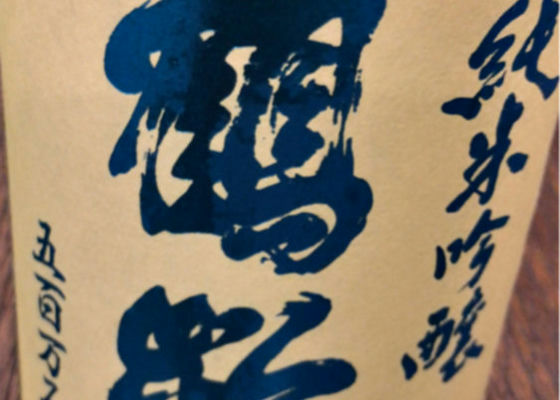 純米吟醸
鶴齢
五百万石